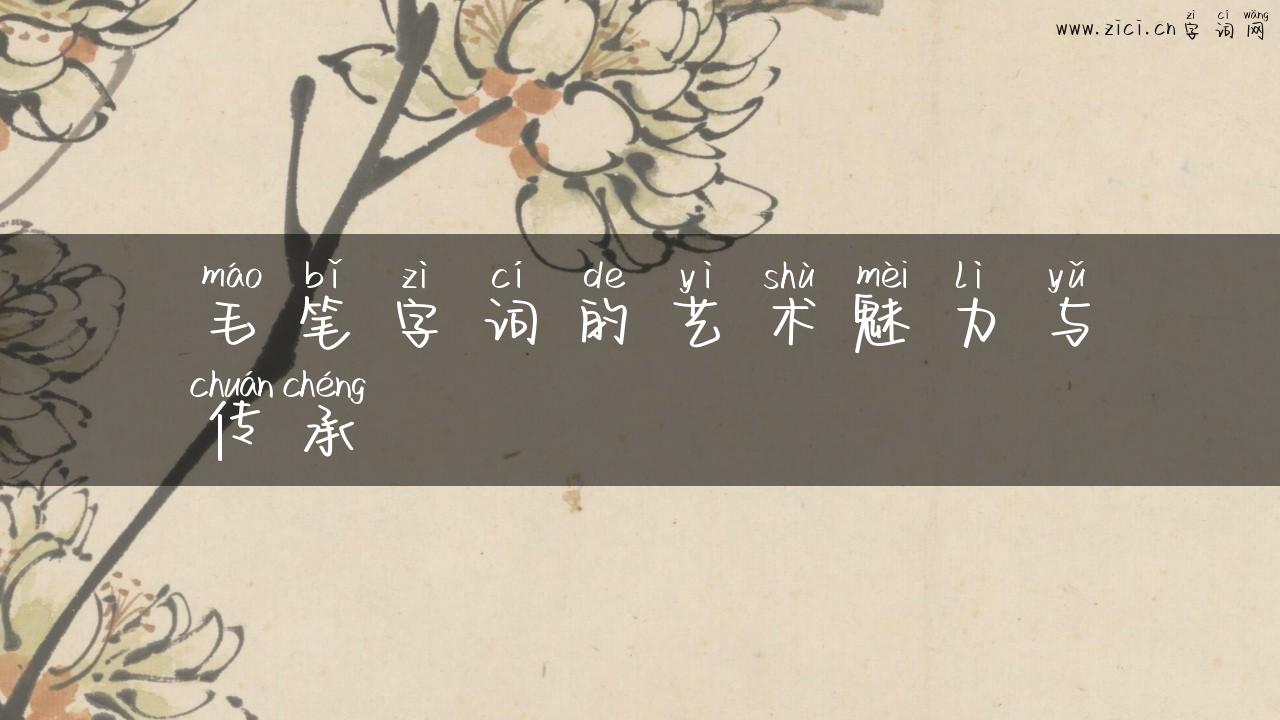 zì cí wǎng
www.zici.cn 字词网
máo bǐ zì cí de yì shù mèi lì yǔ
毛笔字词的艺术魅力与
chuán chéng
传承